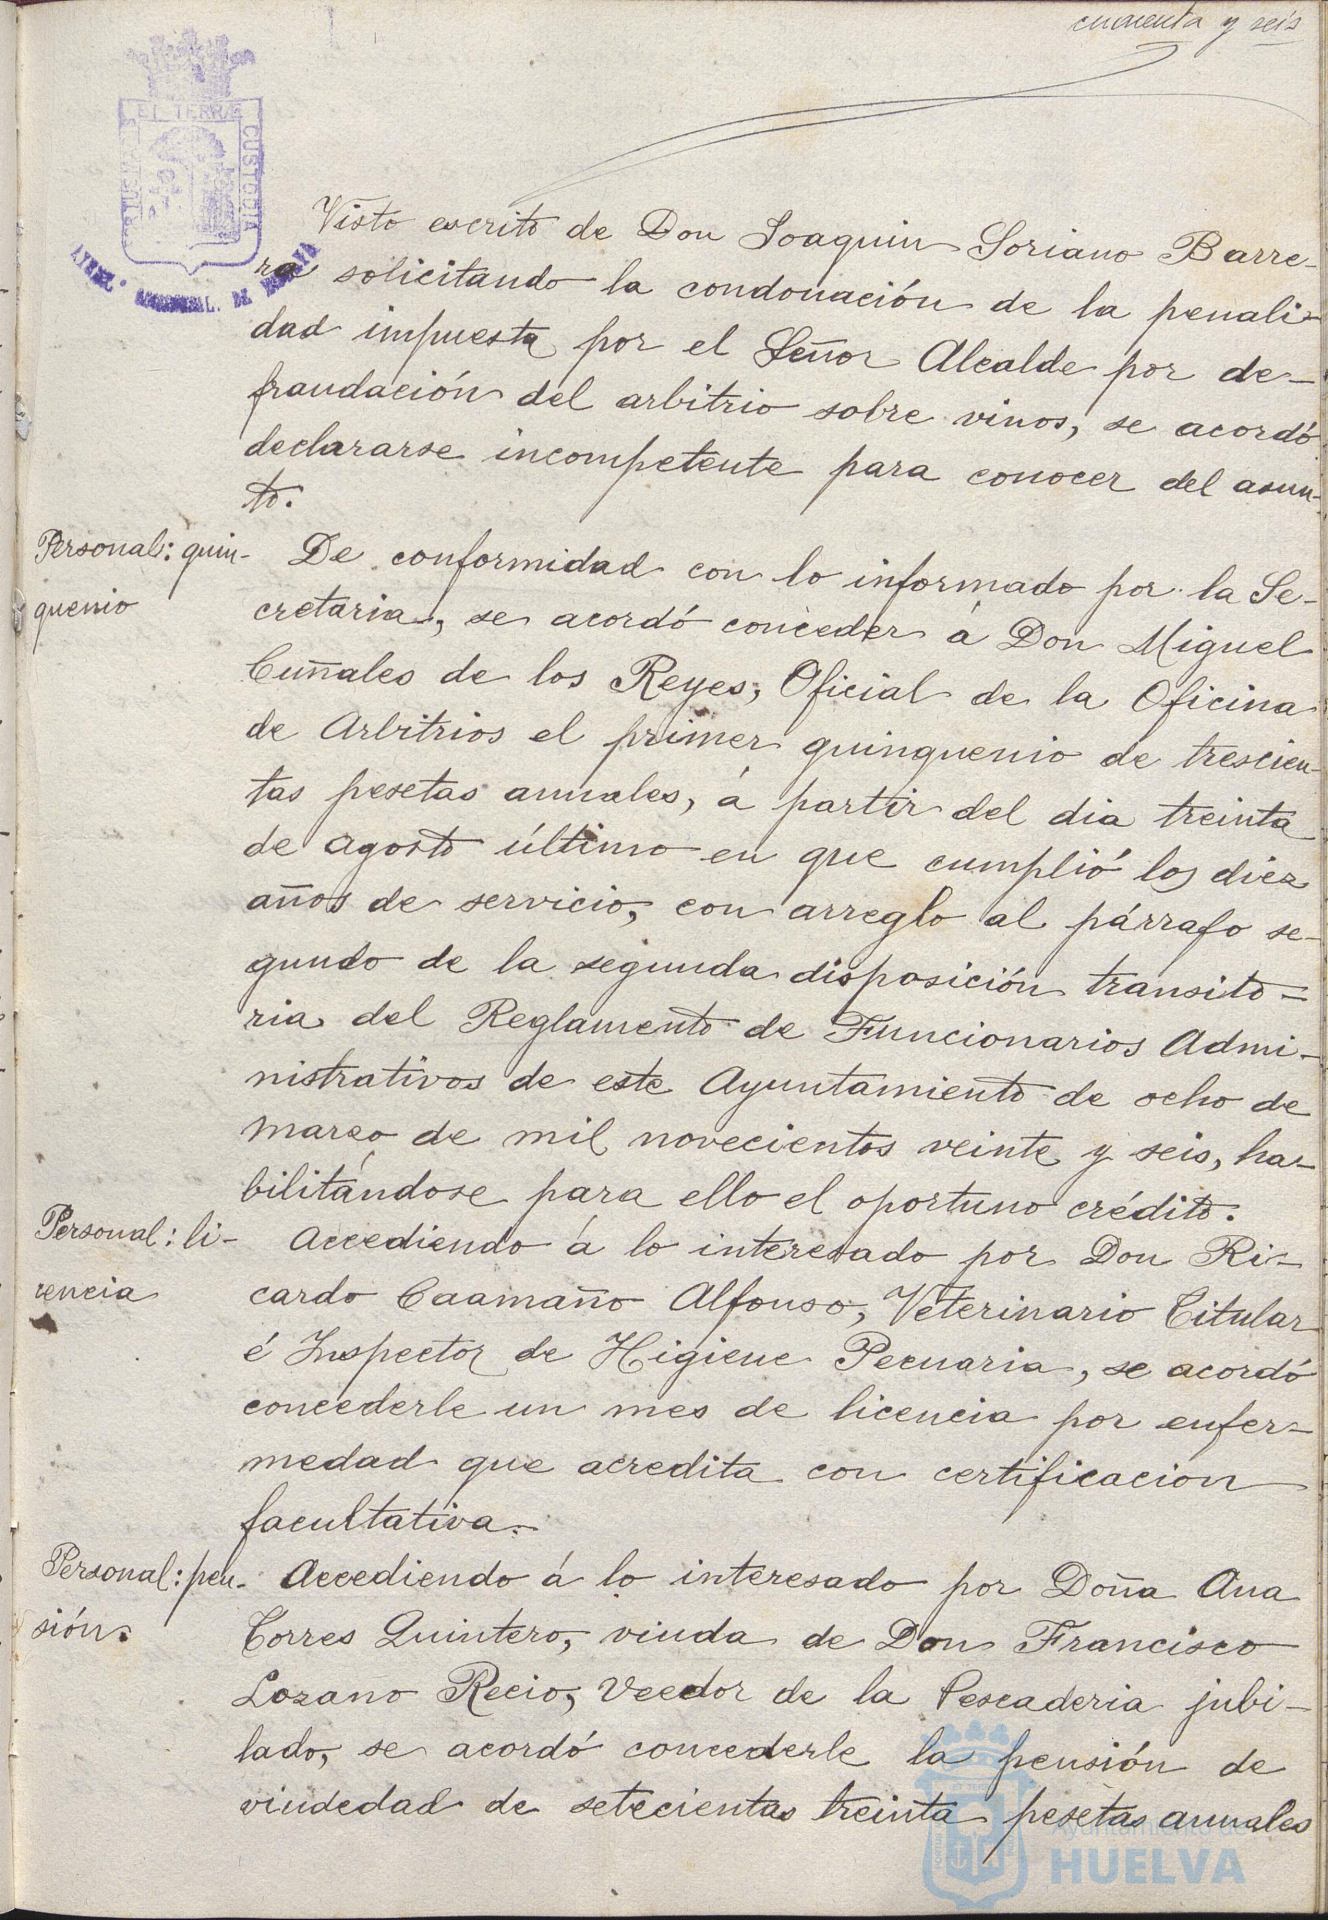 cuarenta y seis
EL TERRAE
CUSTODIA
Visto escrito de Don Joaquin Soriano Barre-
ra solicitando la condonación de la penali-
dad impuesta por el Señor Alcalde por de-
fraudación del arbitrio sobre vinos, se acordó
declararse incompetente para conocer del asun-
to.
Personal: quin-
quenio
De conformidad con lo informado por la Se-
cretaria, se acordó conceder á Don Miguel
Cuñales de los Reyes, Oficial de la Oficina
de Arbitrios el primer quinquenio de trescien-
tas pesetas anuales, á partir del dia treinta
de agosto último en que cumplió los diez
años de servicio, con arreglo al párrafo se-
gundo de la segunda disposición transito-
ria del Reglamento de Funcionarios Admi-
nistrativos de este Ayuntamiento de ocho de
marzo de mil novecientos veinte y seis, ha-
bilitándose para ello el oportuno crédito.
Personal: li-
cencia
Accediendo á lo interesado por Don Ri-
cardo Caamaño Alfonso, Veterinario Titular
é Inspector de Higiene Pecuaria, se acordó
concederle un mes de licencia por enfer-
medad que acredita con certificacion
facultativa.
Personal: pen-
sión.
Accediendo á lo interesado por Doña Ana
Torres Quintero, viuda de Don Francisco
Lozano Recio, Veedor de la Pescaderia jubi-
lado, se acordó concederle la pensión de
viudedad de setecientas treinta pesetas anuales
Ayuntamiento de
HUELVA